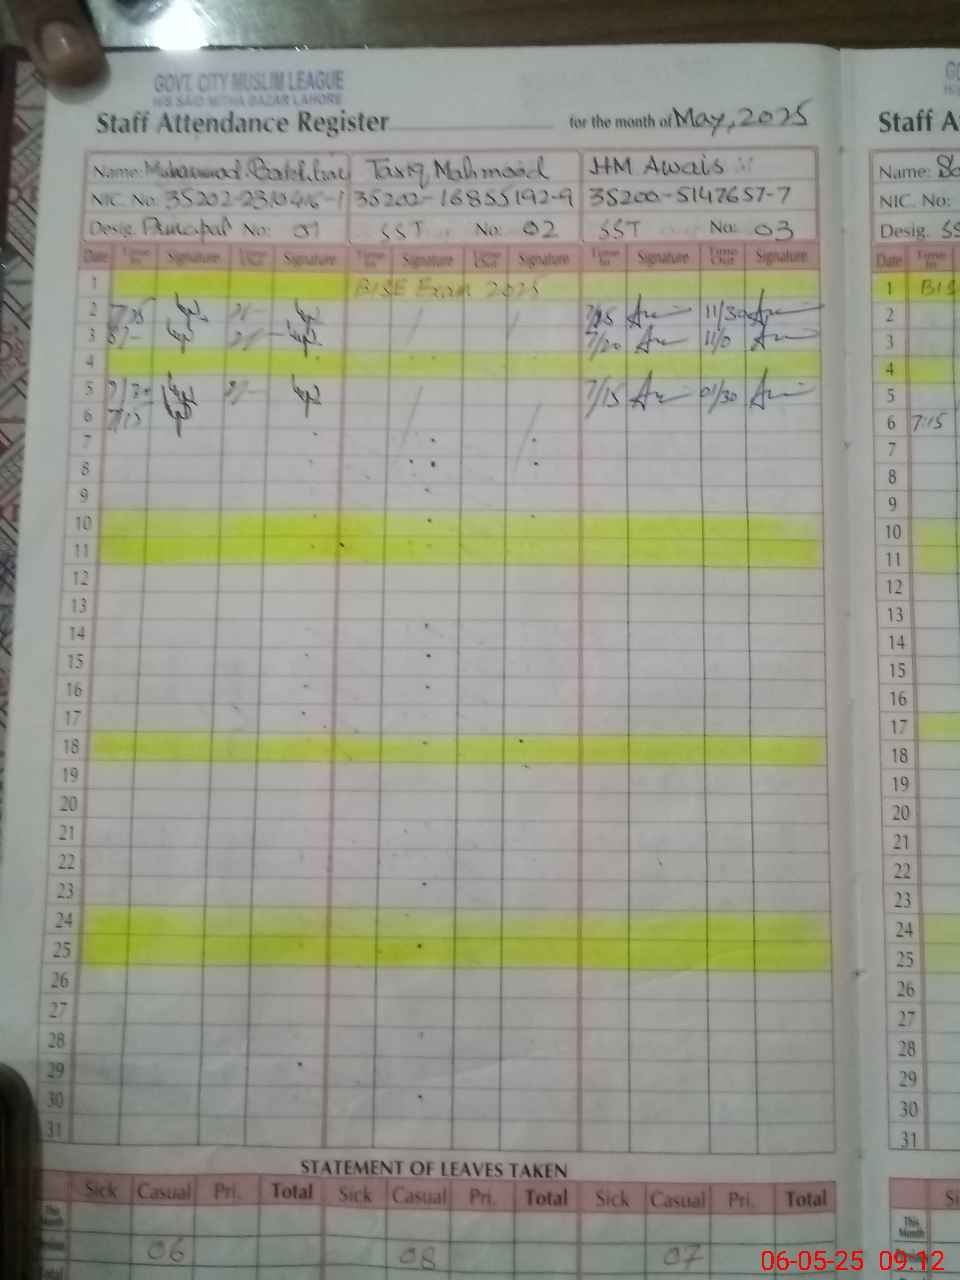 GOVT. CITY MUSLIM LEAGUE
H/S SAID MITHA BAZAR LAHORE
Staff Attendance Register for the month of May, 2025
Name: Muhammad Tariq Mahmood HM Awais
NIC. No. 35202- 35202-1685592-9 35200-5147657-7
Desig. Principal No: 01 SST No: 02 SST No: 03
Date Time In Signature Time Out Signature Time In Signature Time Out Signature Time In Signature Time Out Signature
1 BISE Exam 2025
2 7/15 7/15 11/30
3 8/- 7/20 11/0
4
5 7/15 01/30
6 7/15
7
8
9
10
11
12
13
14
15
16
17
18
19
20
21
22
23
24
25
26
27
28
29
30
31
STATEMENT OF LEAVES TAKEN
Sick Casual Pri. Total Sick Casual Pri. Total Sick Casual Pri. Total
This Month
06 08 07
Total
Staff A
Name:
NIC. No:
Desig. SS
Date Time In
1 BIS
2
3
4
5
6 7:15
7
8
9
10
11
12
13
14
15
16
17
18
19
20
21
22
23
24
25
26
27
28
29
30
31
This Month
06-05-25 09:12